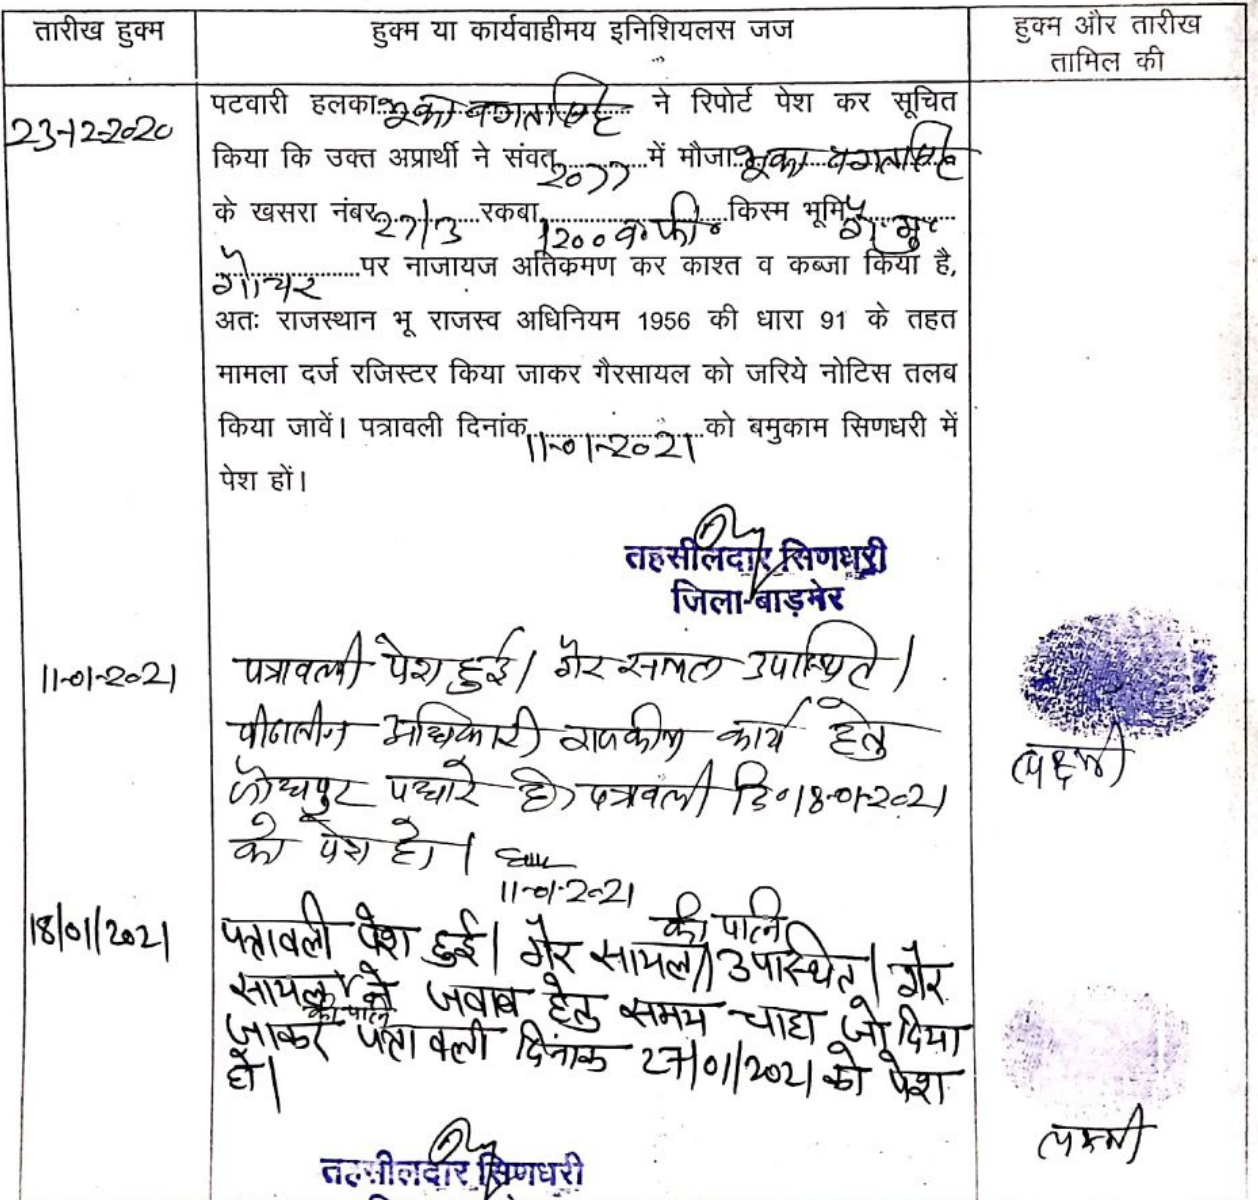 तारीख हुक्म
हुक्म या कार्यवाहीमय इनिशियलस जज
हुक्म और तारीख
तामिल की
23-12-2020
पटवारी हलका भूका वगतसिंह ने रिपोर्ट पेश कर सूचित
किया कि उक्त अप्रार्थी ने संवत 2077 में मौजा भूका वगतसिंह
के खसरा नंबर 27/3 रकबा 1200 व.फी. किस्म भूमि गै. मु.
गोचर पर नाजायज अतिकमण कर काश्त व कब्जा किया है,
अतः राजस्थान भू राजस्व अधिनियम 1956 की धारा 91 के तहत
मामला दर्ज रजिस्टर किया जाकर गैरसायल को जरिये नोटिस तलब
किया जावें। पत्रावली दिनांक 11-01-2021 को बमुकाम सिणधरी में
पेश हों।
तहसीलदार सिणधरी
जिला-बाड़मेर
11-01-2021
पत्रावली पेश हुई। गैर सायल उपस्थित।
पीठासीन अधिकारी राजकीय कार्य हेतु
जोधपुर पधारे है। पत्रावली दि० 18-01-2021
को पेश हो।
11-01-2021
लक्ष्मी
18/01/2021
पत्रावली पेश हुई। गैर सायल की पत्नि उपस्थित। गैर
सायल की पत्नि ने जवाब हेतु समय चाहा जो दिया
जाकर पत्रावली दिनांक 27/01/2021 को पेश
हो।
लक्ष्मी
तहसीलदार सिणधरी